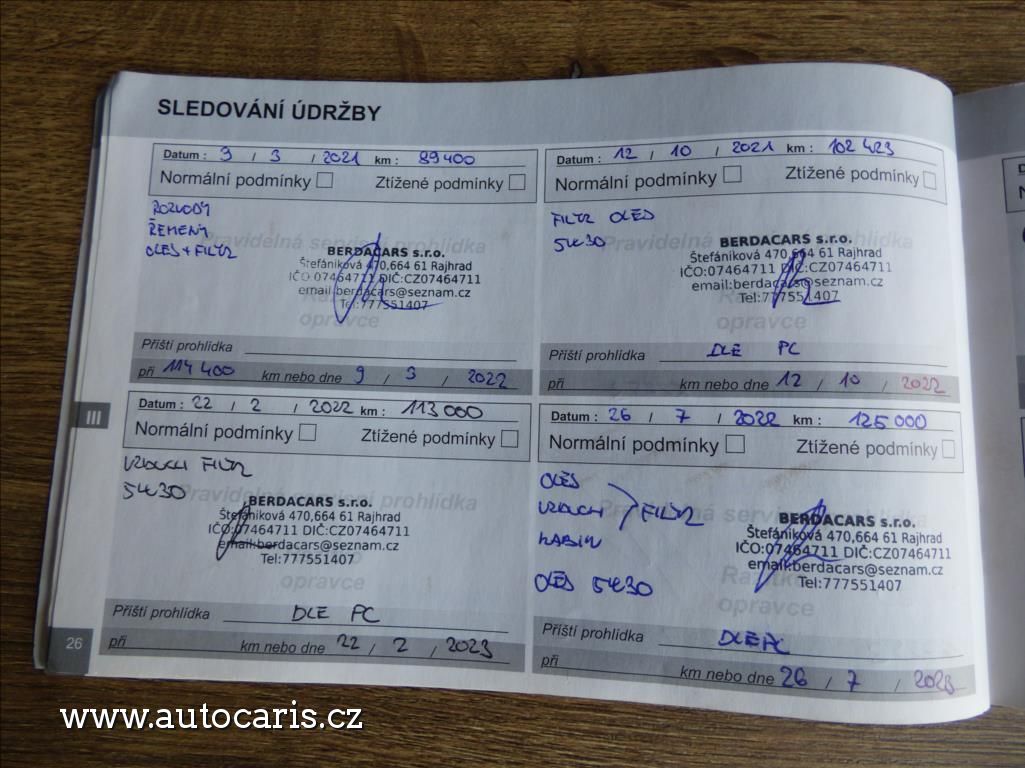 SLEDOVÁNÍ ÚDRŽBY
Datum : 9 / 3 / 2021 km : 89 400
Normální podmínky Ztížené podmínky
ROZVODY
ŘEMENY
OLEJ + FILTR
Pravidelná servisní prohlídka
BERDACARS s.r.o.
Štefániková 470,664 61 Rajhrad
IČO:07464711 DIČ:CZ07464711
email:berdacars@seznam.cz
Tel:777551407
opravce
Příští prohlídka
při 114 400 km nebo dne 9 / 3 / 2022
Datum : 12 / 10 / 2021 km : 102 423
Normální podmínky Ztížené podmínky
FILTR OLEJ
5W30
Pravidelná servisní prohlídka
BERDACARS s.r.o.
Štefániková 470,664 61 Rajhrad
IČO:07464711 DIČ:CZ07464711
email:berdacars@seznam.cz
Tel:777551407
opravce
Příští prohlídka DLE PC
při km nebo dne 12 / 10 / 2022
III
Datum : 22 / 2 / 2022 km : 113 000
Normální podmínky Ztížené podmínky
VZDUCH FILTR
5W30
Pravidelná servisní prohlídka
BERDACARS s.r.o.
Štefániková 470,664 61 Rajhrad
IČO:07464711 DIČ:CZ07464711
email:berdacars@seznam.cz
Tel:777551407
opravce
Příští prohlídka DLE PC
při km nebo dne 22 / 2 / 2023
Datum : 26 / 7 / 2022 km : 125 000
Normální podmínky Ztížené podmínky
OLEJ
VZDUCH FILTR
KABIN
OLEJ 5W30
Pravidelná servisní prohlídka
BERDACARS s.r.o.
Štefániková 470,664 61 Rajhrad
IČO:07464711 DIČ:CZ07464711
email:berdacars@seznam.cz
Tel:777551407
opravce
Příští prohlídka DLE PC
při km nebo dne 26 / 7 / 2023
26
www.autocaris.cz